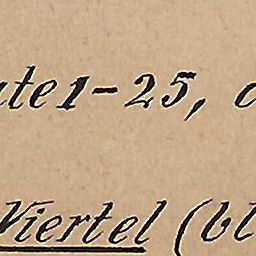 ute 1-25, 
Viertel (bl